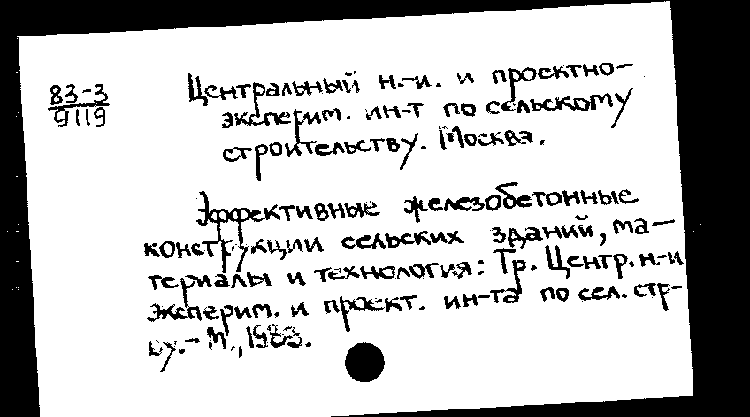 83-3
9119
Центральный н.-и. и проектно-
эксперим. ин-т по сельскому
строительству. Москва.
Эффективные железобетонные
конструкции сельских зданий, ма-
териалы и технология: Тр. Центр. н-и
эксперим. и проект. ин-та по сел. стр-
ву. - М., 1983.